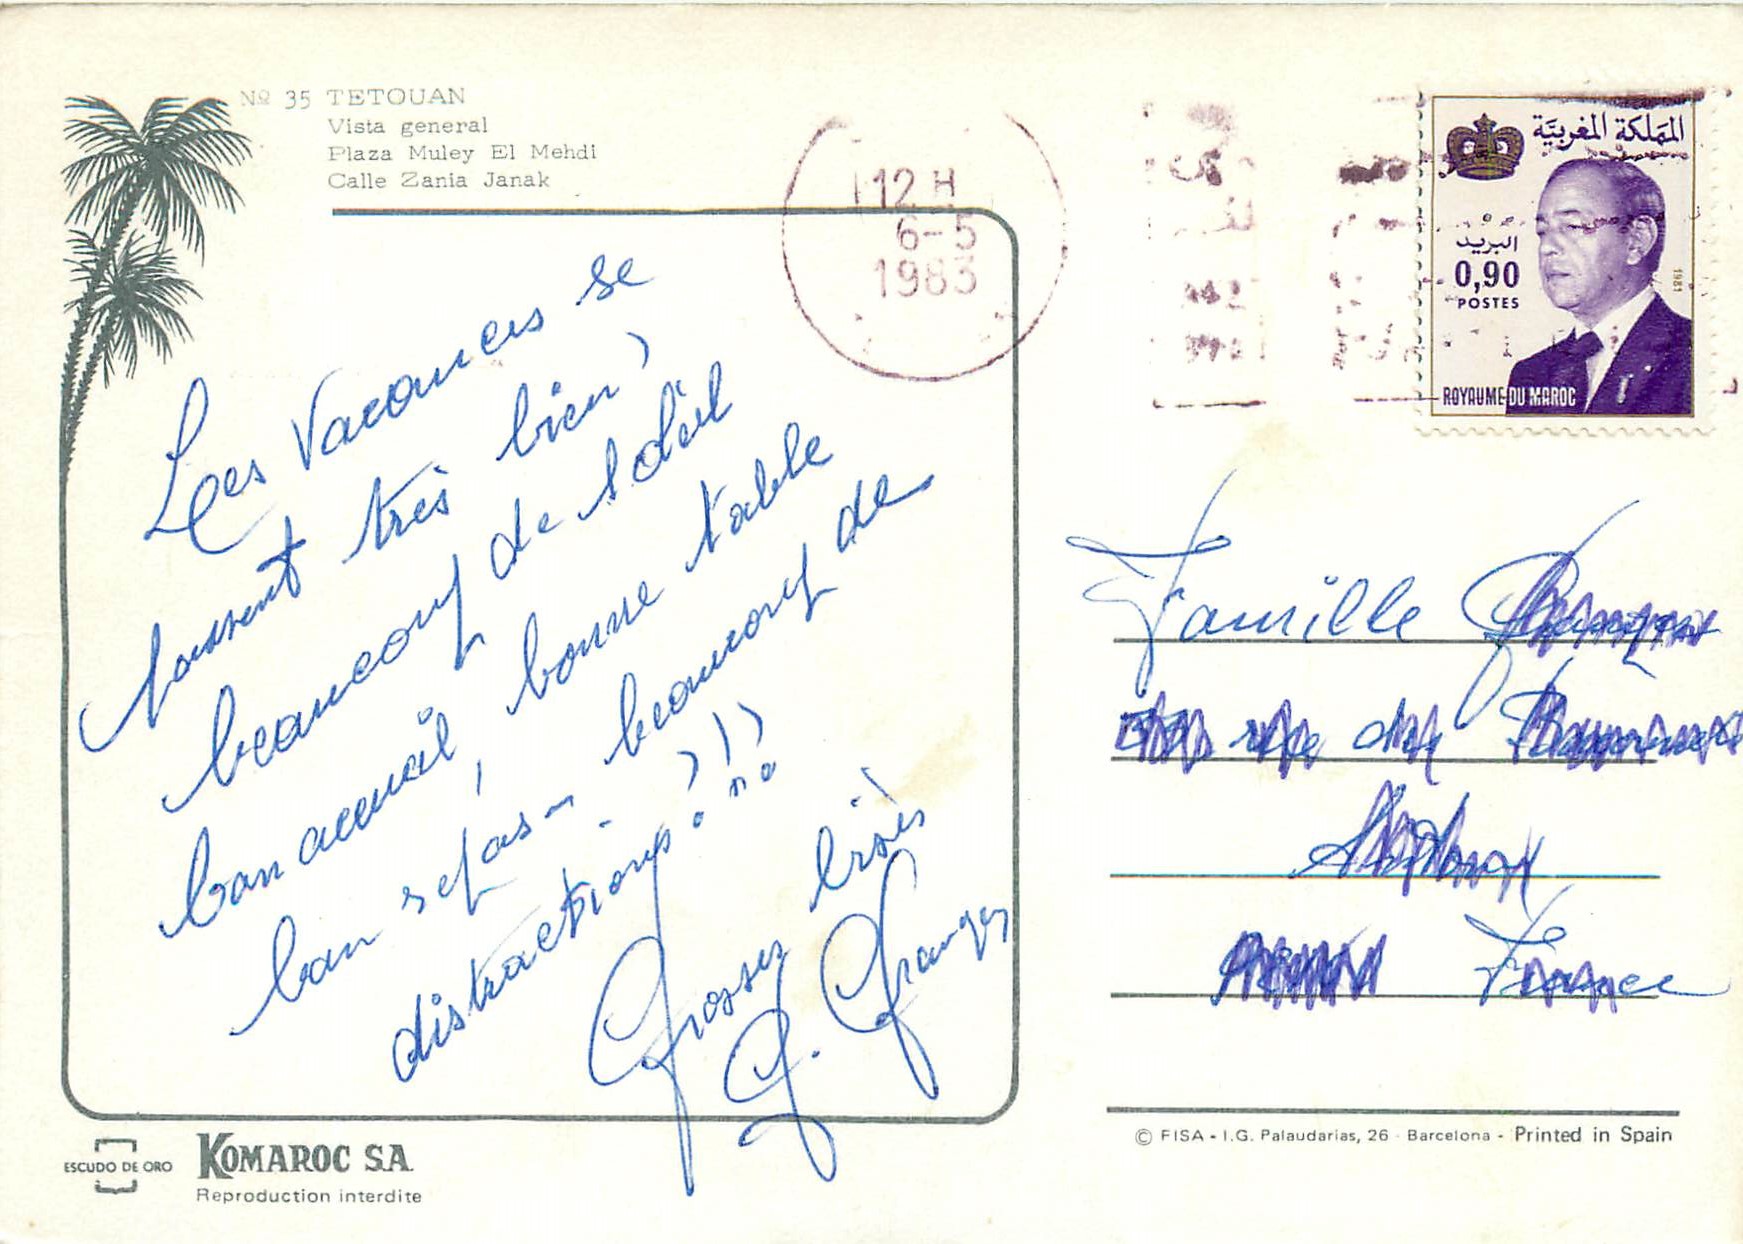 Nº 35 TETOUAN
Vista general
Plaza Muley El Mehdi
Calle Zania Janak
12 H
6-5
1983
المملكة المغربية
البريد
0,90
POSTES
1981
ROYAUME DU MAROC
Les vacances se
passent très bien,
beaucoup de soleil
bon accueil, bonne table
bon repas - beaucoup de
distractions!!!
Grosses bises
G. Granger
Famille
rue du
France
ESCUDO DE ORO
KOMAROC S.A.
Reproduction interdite
© FISA - I.G. Palaudarias, 26 - Barcelona - Printed in Spain